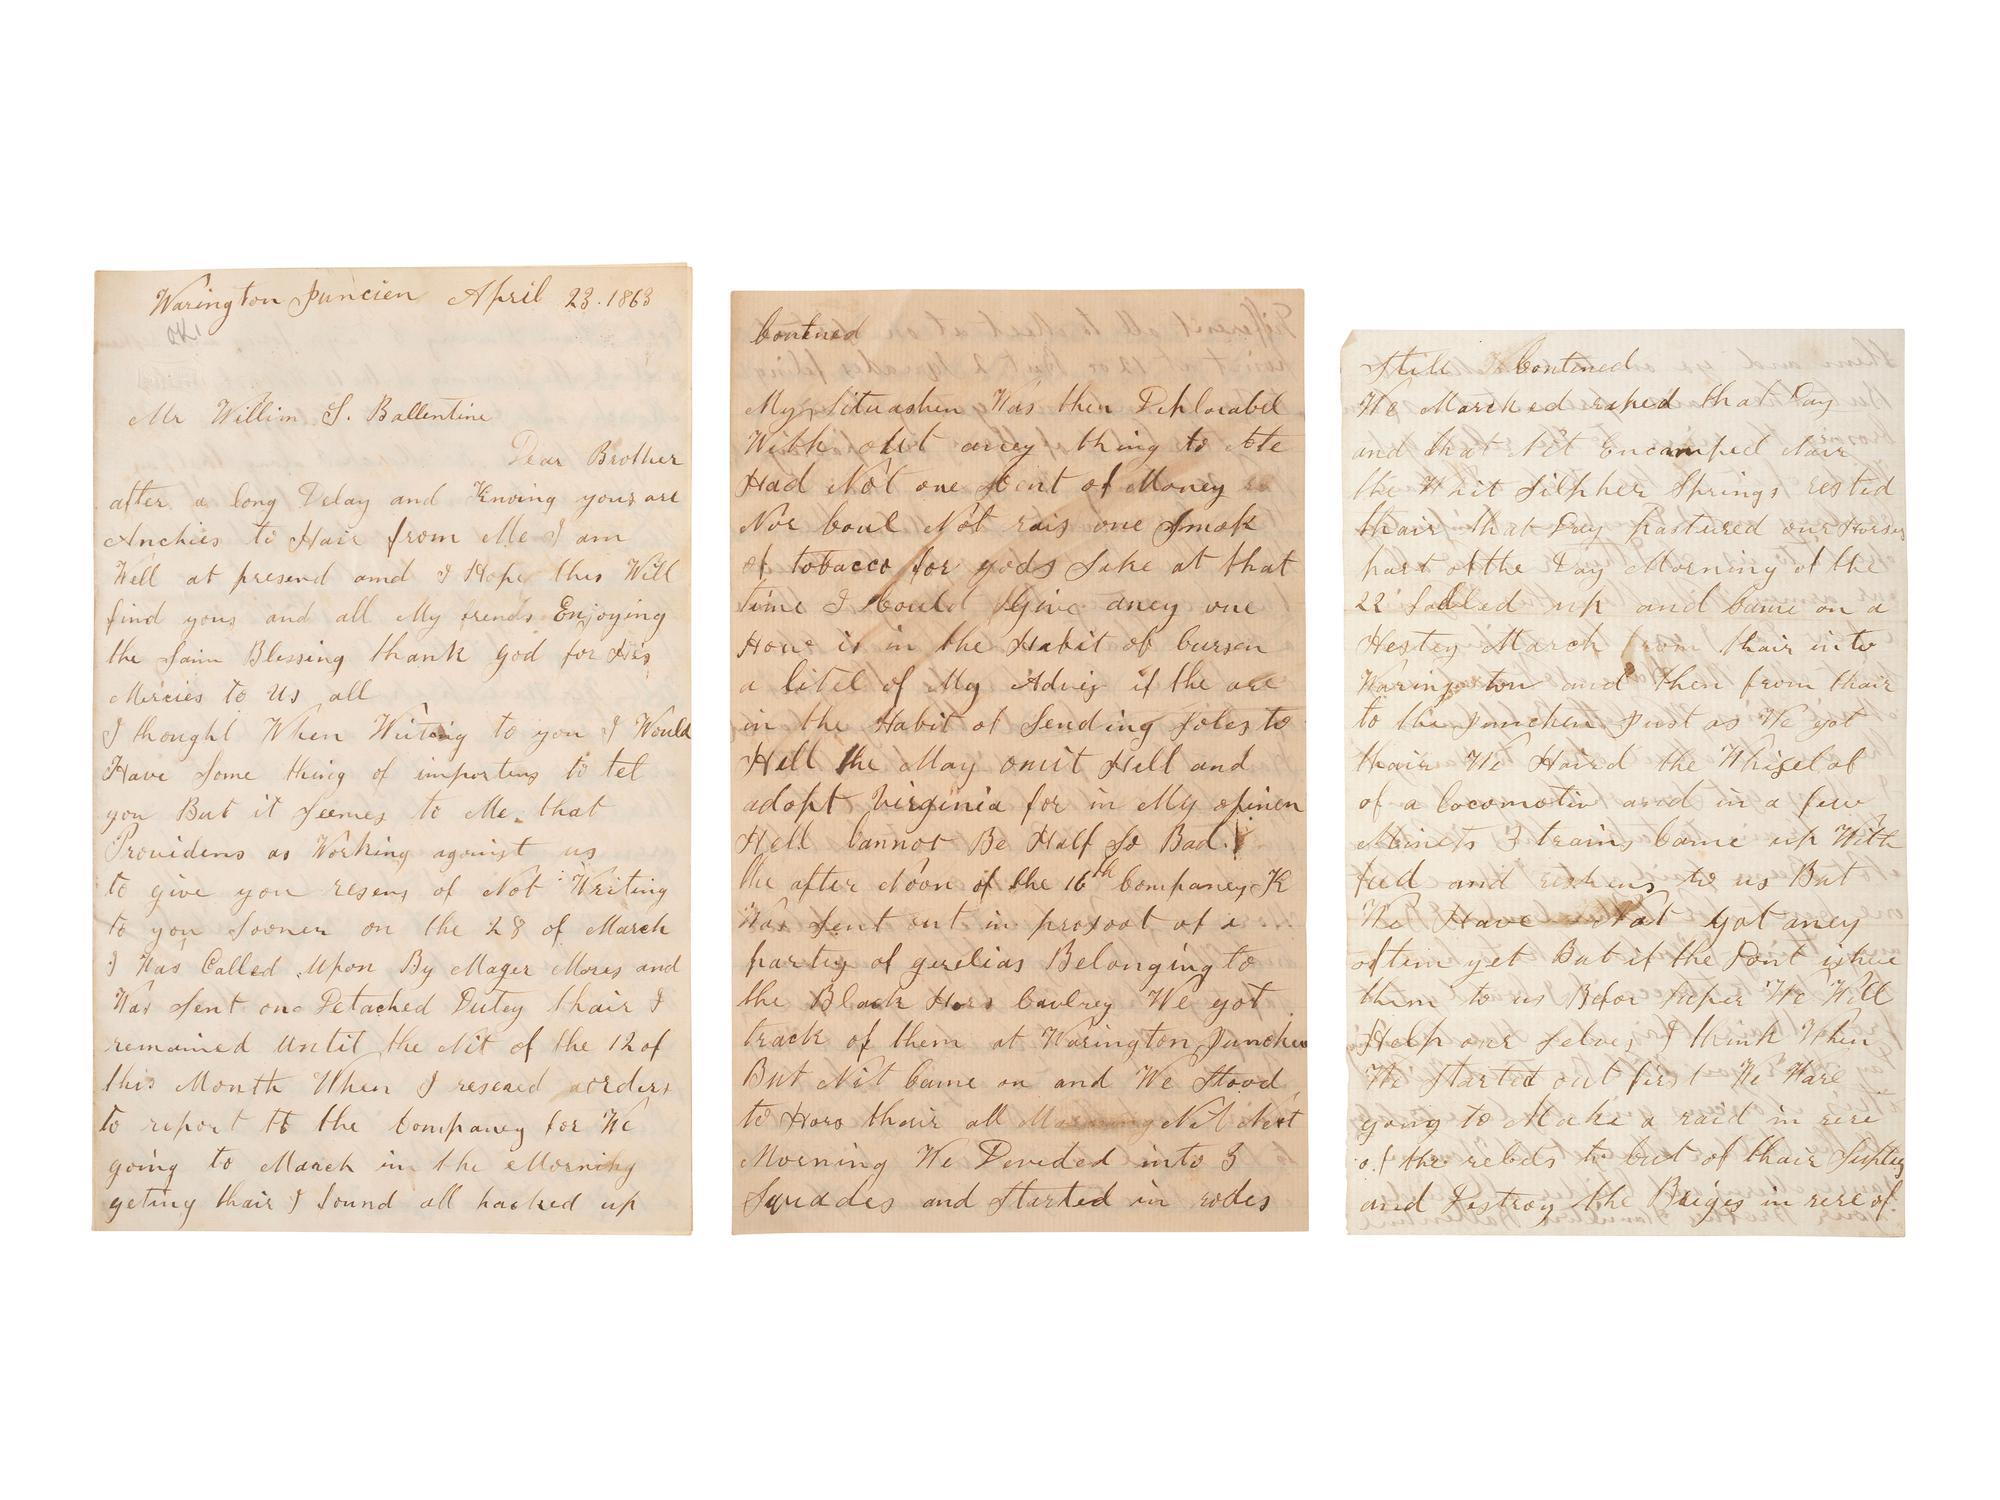 Warington Juncien April 23. 1863
Mr Willim S. Ballentine
Dear Brother
after a long Delay and Knoing yous are
Anchies to Hair from Me I am
Well at presend amd I Hope this Will
find yous and all My frends Enjoying
the Saim Blessing thank god for His
Mircies to Us all
I thought When Writing to you I Would
Have Some thing of importens to tel
you But it Seemes to Me that
Providens as Working against us
to give you resens of Not Writing
to you Sooner on the 28 of March
I Was Called Upon By Mager Mores and
Was Sent one Detached Dutey thair I
remained Untit the Nit of the 12 of
this Month When I reseaed aorders
to report to the Companey for We
going to March in the Morning
geting thair I Found all packed up
Contened
My Situashen Was then Deplorabel
With out aney thing to Ate
Had Not one Cent of Money
Nor Coul Not rais one Smok
of tobacco for gods Sake at that
time I Could Give aney one
How is in the Habit of Cursen
a litel of My Advis if the are
in the Habit of Sending foles to
Hell the May omit Hell and
adopt Virginia for in My opinen
Hell Cannot Be Half So Bad.
the after Noon of the 16th Companey K
Was Sent out in prosoot of a
partey of gerelias Belonging to
the Black Hors Cavlrey We got
track of them at Warington Junchen
But Nit Came on and We Stood
to Hors thair all Nit Next
Morning We Devided into 3
Squades and Started in rodes
Still Contened
We Marched raped that Day
and that Nit Encamped Nair
the Whit Silpher Springs rested
thair that Day pastured our Horses
part of the Day Morning of the
22 Sadled up and Came on a
Hestey March from thair in to
Warington and then from thair
to the Junchen Just as We got
thair We Haird the Whisel of
of a locomotiv and in a few
Minets 3 trains Came up With
feed and reshens to us But
We Have Not got aney
of tim yet But if the Dont ishue
them to us Befor Super We Will
Help our Selves I think When
We Started out first We Ware
going to Make a raid in rere
of the rebels to cut of thair Suplies
and Destroy the Briges in rere of